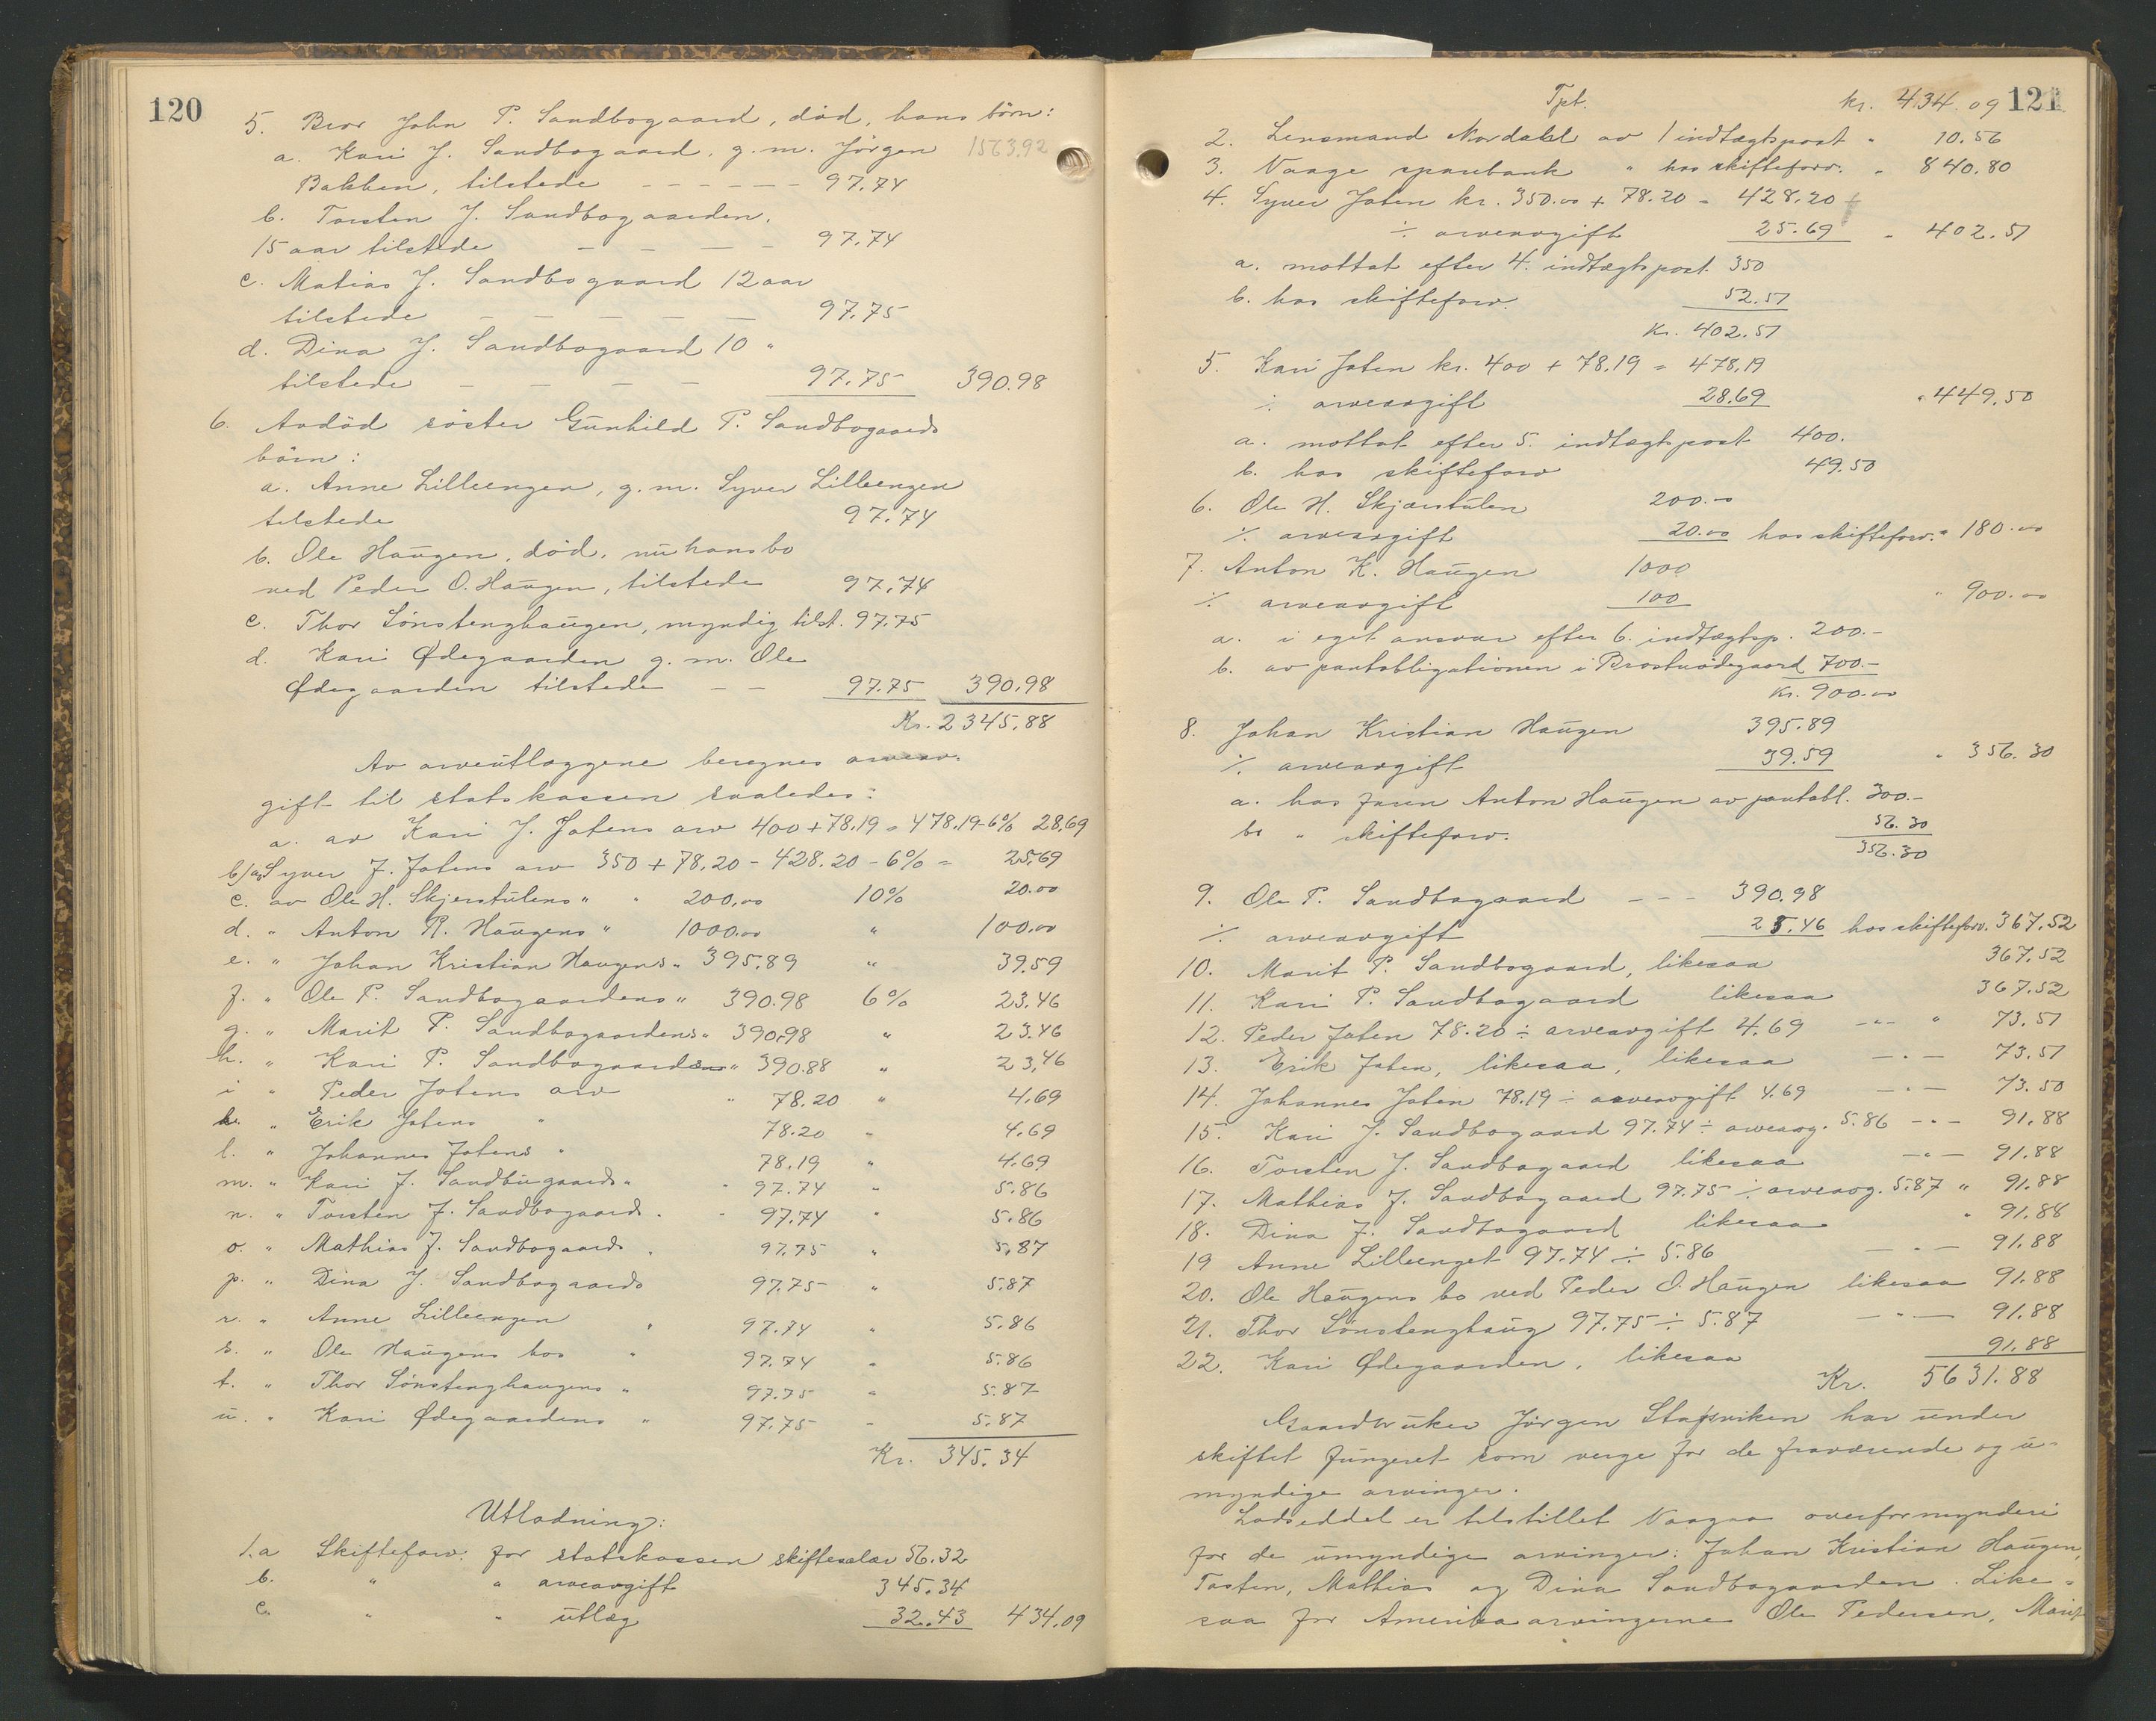 120
5. Bror John P. Sandbogaard, död, hans börn:
a. Kari J. Sandbogaard, g. m. Jörgen 1563.92
Bakken, tilstede - - - - - - 97.74
b. Torsten J. Sandbogaarden,
15 aar tilstede - - - - 97.74
c. Matias J. Sandbogaard 12 aar
tilstede - - - - - 97.75
d. Dina J. Sandbogaard 10 "
tilstede - - - - 97.75 390.98
6. Avdöd söster Gunhild P. Sandbogaards
börn:
a. Anne Lilleengen, g. m. Syver Lilleengen
tilstede 97.74
b. Ole Haugen, död, nu hans bo
ved Peder O. Haugen, tilstede 97.74
c. Thor Sönstenghaugen, myndig tilst. 97.75
d. Kari Ødegaarden g. m. Ole
Ødegaarden tilstede - - 97.75 390.98
Kr. 2345.88
Av arveutlæggene beregnes arveav-
gift til statskassen saaledes:
a. av Kari J. Jotens arv 400 + 78.19 = 478.19 - 6% 28.69
b/ av Syver J. Jotens arv 350 + 78.20 - 428.20 - 6% = 25.69
c. av Ole H. Skjerstulens " " 200.00 10% 20.00
d. " Anton K. Haugens " 1000.00 " 100.00
e. " Johan Kristian Haugens " 395.89 " 39.59
f. " Ole P. Sandbogaardens " 390.98 6% 23.46
g. " Marit P. Sandbogaardens " 390.98 " 23.46
h. " Kari P. Sandbogaardens " 390.88 " 23.46
i " Peder Jotens arv " 78.20 " 4.69
k. " Erik Jotens " 78.20 " 4.69
l. " Johannes Jotens " 78.19 " 4.69
m. " Kari J. Sandbugaards " " 97.74 " 5.86
n. " Torsten J. Sandbogaards " " 97.74 " 5.86
o. " Mathias J. Sandbogaards " 97.75 " 5.87
p. " Dina J. Sandbogaards 97.75 " 5.87
r. " Anne Lilleengen " 97.74 " 5.86
s. " Ole Haugens bos " 97.74 " 5.86
t. " Thor Sönstenghaugens " 97.75 " 5.87
u. " Kari Ødegaardens " 97.75 " 5.87
Kr. 345.34
Utlodning:
1.a Skifteforv. for statskassen skiftesalær 56.32
b. " " arveavgift 345.34
c. " " utlæg 32.43 434.09
Tpt. kr. 434.09 121
2. Lensmand Nordahl av 1 indtægtspost " 10.56
3. Vaage sparebank " hos skifteforv. " 840.80
4. Syver Joten kr. 350.00 + 78.20 = 428.20
÷ arveavgift 25.69 " 402.51
a. mottat efter 4. indtægtspost 350
b. hos skifteforv. 52.51
Kr. 402.51
5. Kari Joten kr. 400 + 78.19 = 478.19
÷ arveavgift 28.69 " 449.50
a. mottat efter 5. indtægtspost 400.
b. hos skifteforv 49.50
6. Ole H. Skjærstulen 200.00
÷ arveavgift 20.00 hos skifteforv. " 180.00
7. Anton K. Haugen 1000
÷ arveavgift 100 " 900.00
a. i eget ansvar efter 6. indtægtsp. 200.-
b. av pantobligationen i Brostuödegaard 700.-
Kr. 900.00
8. Johan Kristian Haugen 395.89
÷ arveavgift 39.59 " 356.30
a. hos faren Anton Haugen av pantobl. 300.-
b. " skifteforv. 56.30
356.30
9. Ole P. Sandbogaard - - - 390.98
÷ arveavgift 23.46 hos skifteforv. 367.52
10. Marit P. Sandbogaard, likesaa 367.52
11. Kari P. Sandbogaard likesaa 367.52
12. Peder Joten 78.20 ÷ arveavgift 4.69 -"- " 73.51
13. Erik Joten, likesaa, likesaa -"- 73.51
14. Johannes Joten 78.19 ÷ arveavgift 4.69 -"- 73.50
15. Kari J. Sandbogaard 97.74 ÷ arveavg. 5.86 -"- 91.88
16. Torsten J. Sandbogaard likesaa -"- 91.88
17. Mathias J. Sandbogaard 97.75 ÷ arveavg. 5.87 " 91.88
18. Dina J. Sandbogaard likesaa " 91.88
19 Anne Lilleenget 97.74 ÷ 5.86 -"- 91.88
20. Ole Haugens bo ved Peder O. Haugen likesaa 91.88
21. Thor Sönstenghaug 97.75 ÷ 5.87 -"- 91.88
22. Kari Ødegaarden, likesaa 91.88
Kr. 5631.88
Gaardbruker Jörgen Stapsviken har under
skiftet fungeret som verge for de fraværende og u-
myndige arvinger.
Lodseddel er tilstillet Vaagaa overformynderi
for de umyndige arvinger: Johan Kristian Haugen,
Tosten, Mathias og Dina Sandbogaarden. Like-
saa for Amerikaarvingerne Ole Pedersen, Marit